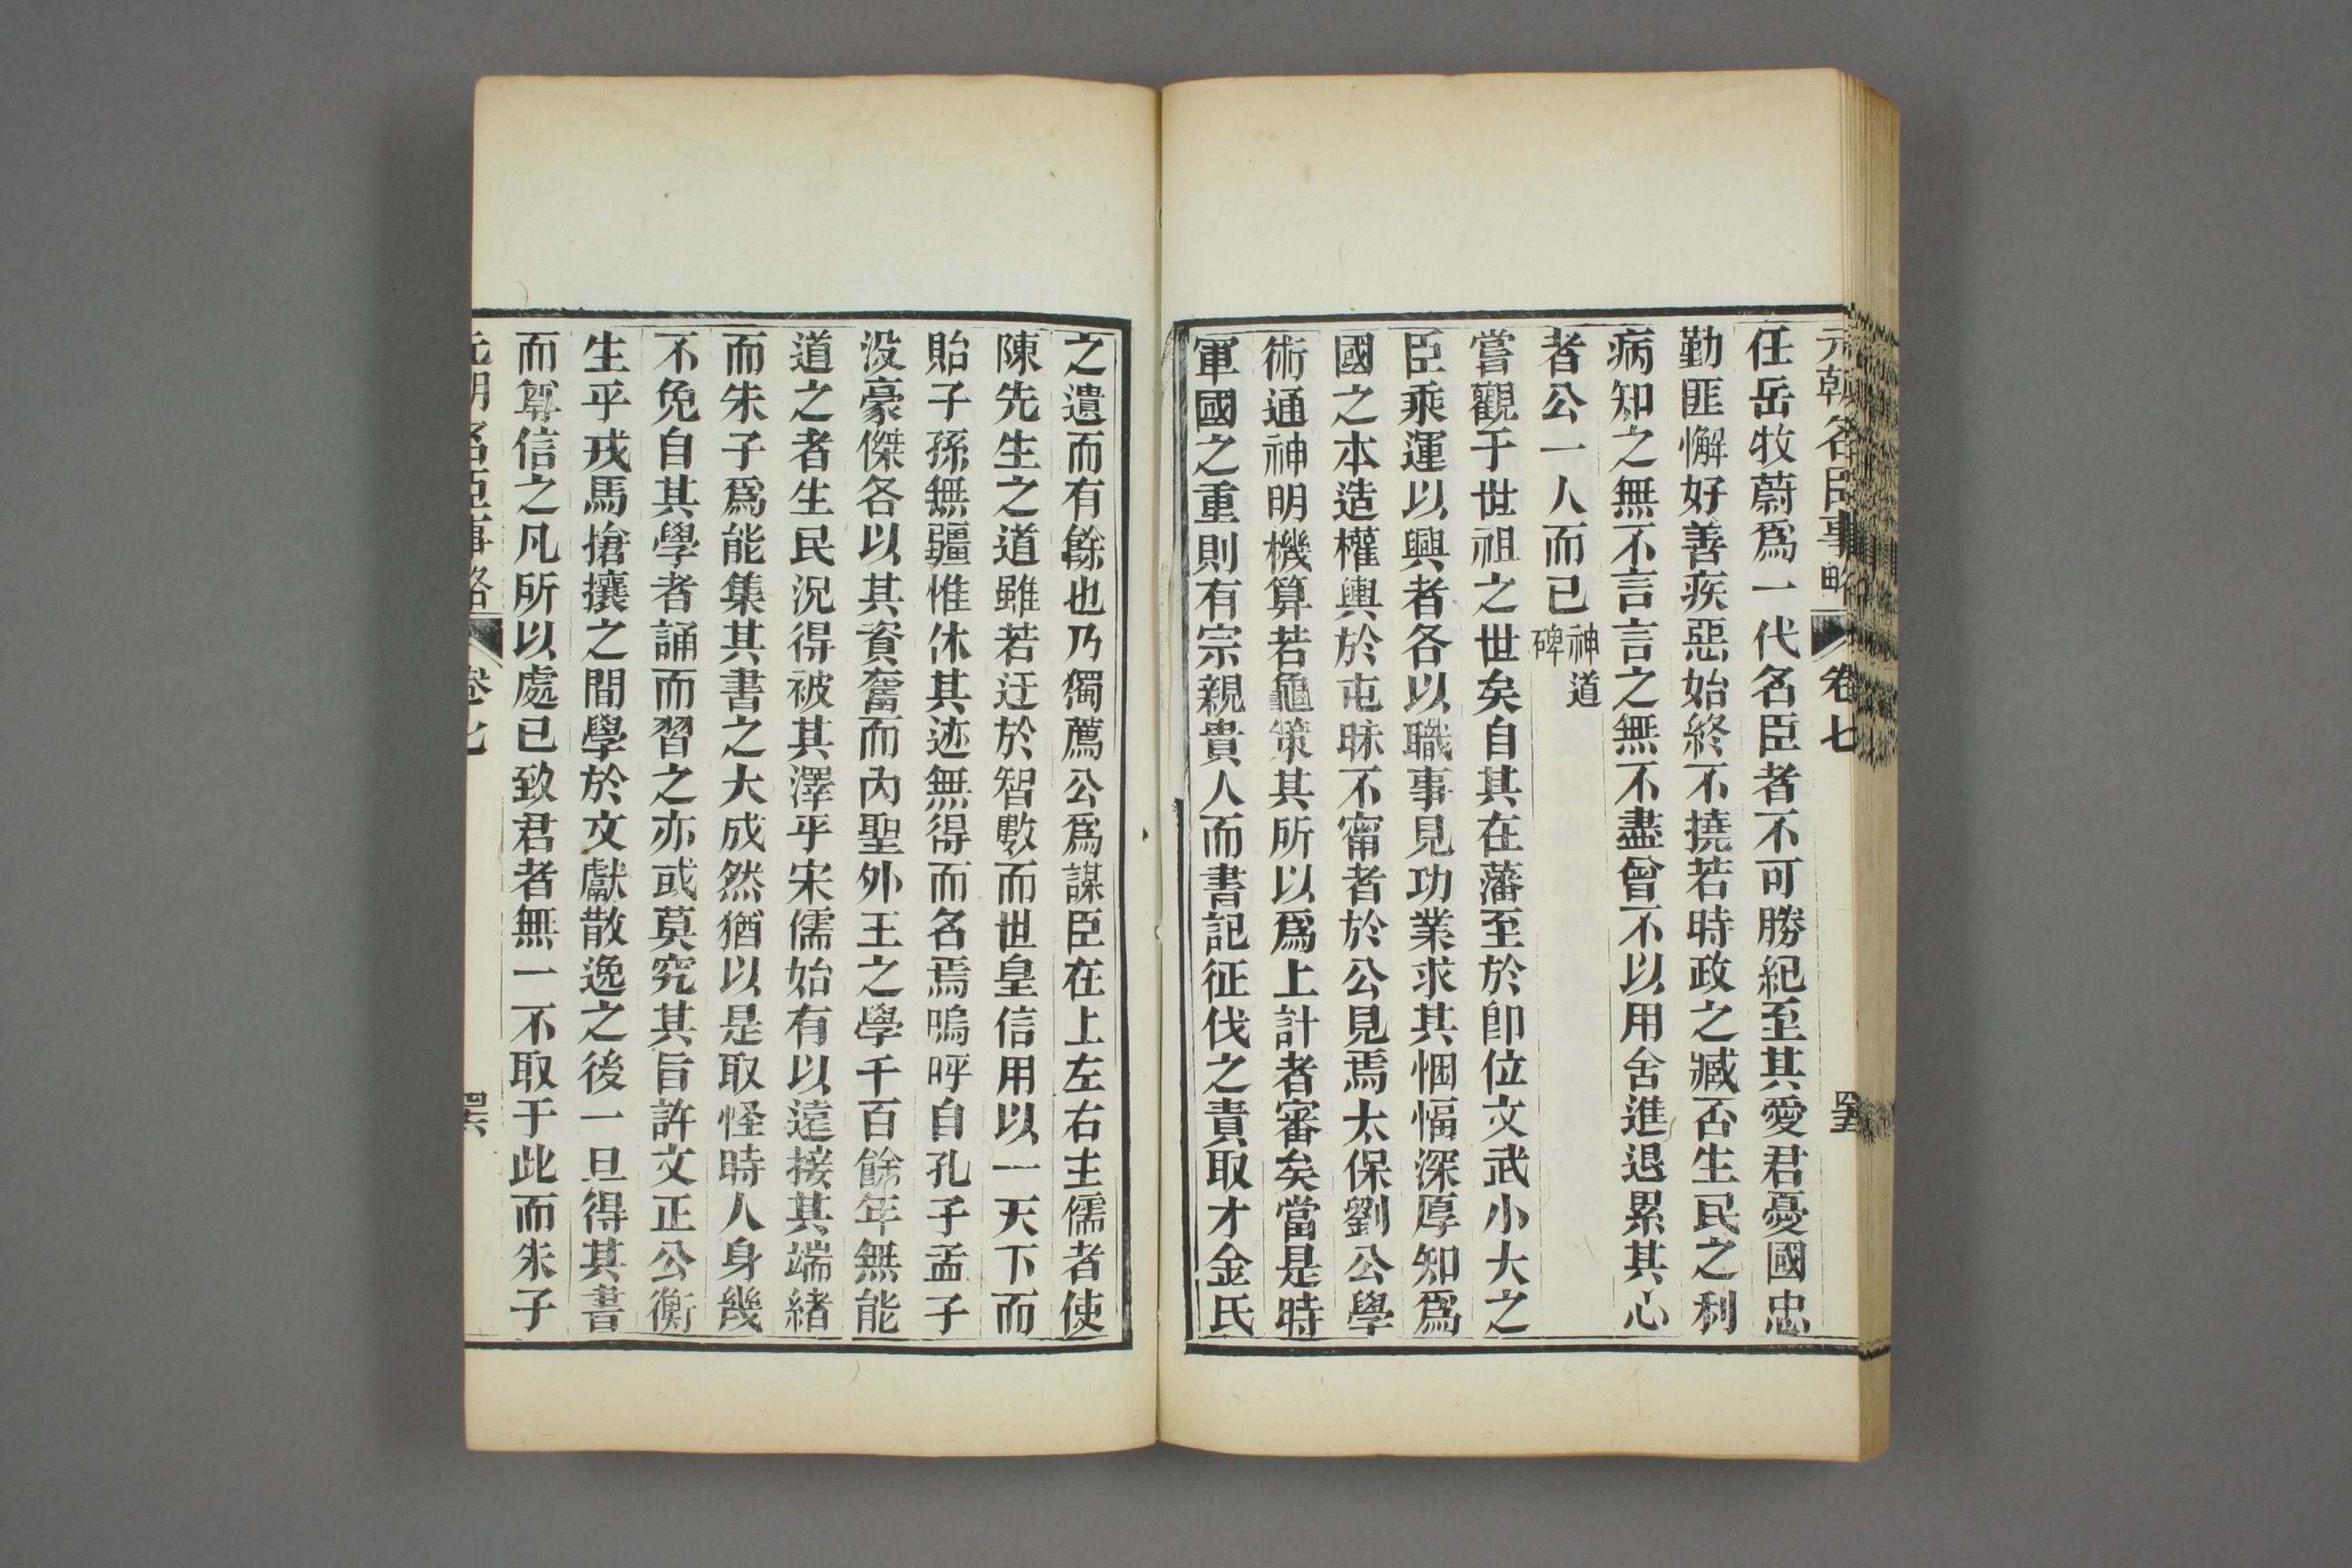 元朝名臣事略 卷七 四五
任岳牧蔚爲一代名臣者不可勝紀至其愛君憂國忠
勤匪懈好善疾惡始終不撓若時政之臧否生民之利
病知之無不言言之無不盡曾不以用舍進退累其心
者公一人而已神道碑
嘗觀于世祖之世矣自其在藩至於卽位文武小大之
臣乘運以興者各以職事見功業求其悃愊深厚知爲
國之本造權輿於屯昧不甯者於公見焉太保劉公學
術通神明機算若龜策其所以爲上計者審矣當是時
軍國之重則有宗親貴人而書記征伐之責取才金氏
之遺而有餘也乃獨薦公爲謀臣在上左右主儒者使
陳先生之道雖若迂於智數而世皇信用以一天下而
貽子孫無疆惟休其迹無得而名焉嗚呼自孔子孟子
没豪傑各以其資奮而內聖外王之學千百餘年無能
道之者生民況得被其澤乎宋儒始有以遠接其端緒
而朱子爲能集其書之大成然猶以是取怪時人身幾
不免自其學者誦而習之亦或莫究其旨許文正公衡
生乎戎馬搶攘之間學於文獻散逸之後一旦得其書
而尊信之凡所以處已致君者無一不取于此而朱子
元朝名臣事略 卷七 四六